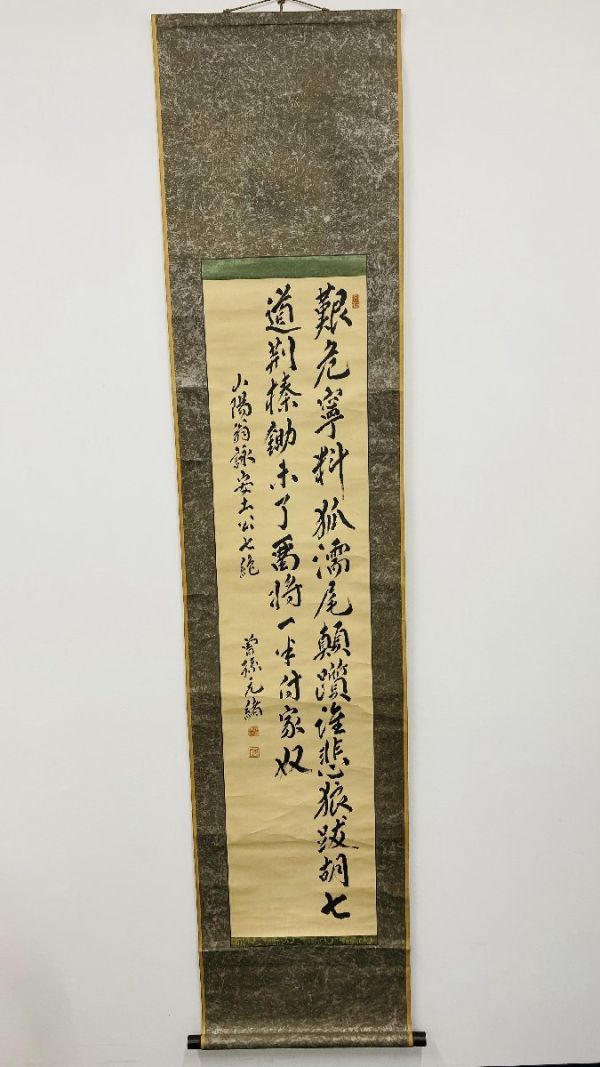 艱危寧料狐濡尾顛躓誰悲狼跋胡七
道荊榛鋤未了留将一半付家奴
山陽翁詠安土公七絶
曽孫元緒